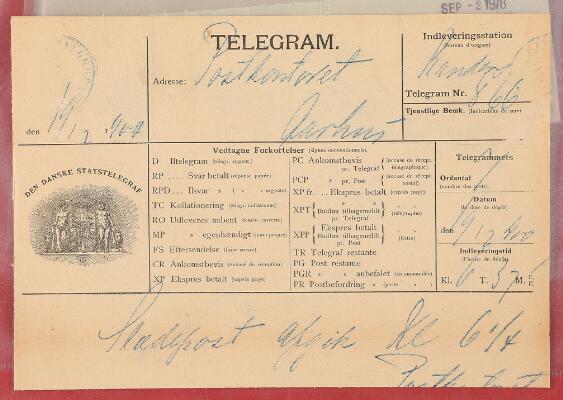 SEP - 2 1970
TELEGRAM.
Adresse: Postkontoret
Aarhus
Indleveringsstation
(Bureau d'origine)
Randers
Telegram Nr. 866
Tjenstlige Bemk. (Indications de serv)
den
DEN DANSKE STATSTELEGRAF
Vedtagne Forkortelser (signes conventionnels).
D Iltelegram (télégr. urgent)
RP .... Svar betalt (réponse payée)
RPD ... Ilsvar
TC Kollationering (télégr. collationné)
RO Udleveres aabent (remise ouverte)
MP » egenhændigt (mains propres)
FS Eftersendelse (faire suivre)
CR Ankomstbevis (accusé de réception)
XP Ekspres betalt (exprès payé)
PC Ankomstbevis pr. Telegraf (accusé de récept. télégraphique)
PCP » pr. Post (accusé de récept. postal)
XP fr.... Ekspres betalt (exprès payé)
XPT » » Budløn tilbagemeldt pr. Telegraf (télégraphe)
XPP Ekspres betalt Budløn tilbagemeldt pr. Post (lettre)
TR Telegraf restante
PG Post restante
PGR » » anbefalet (recommandée)
PR Postbefordring
Telegrammets
Ordantal
(nombre des mots)
Datum
(la date de dépôt)
den
Indleveringstid
(l'heure de dépôt)
Kl. 6 T. 37 M.
Slædepost afgik Kl 6 1/4